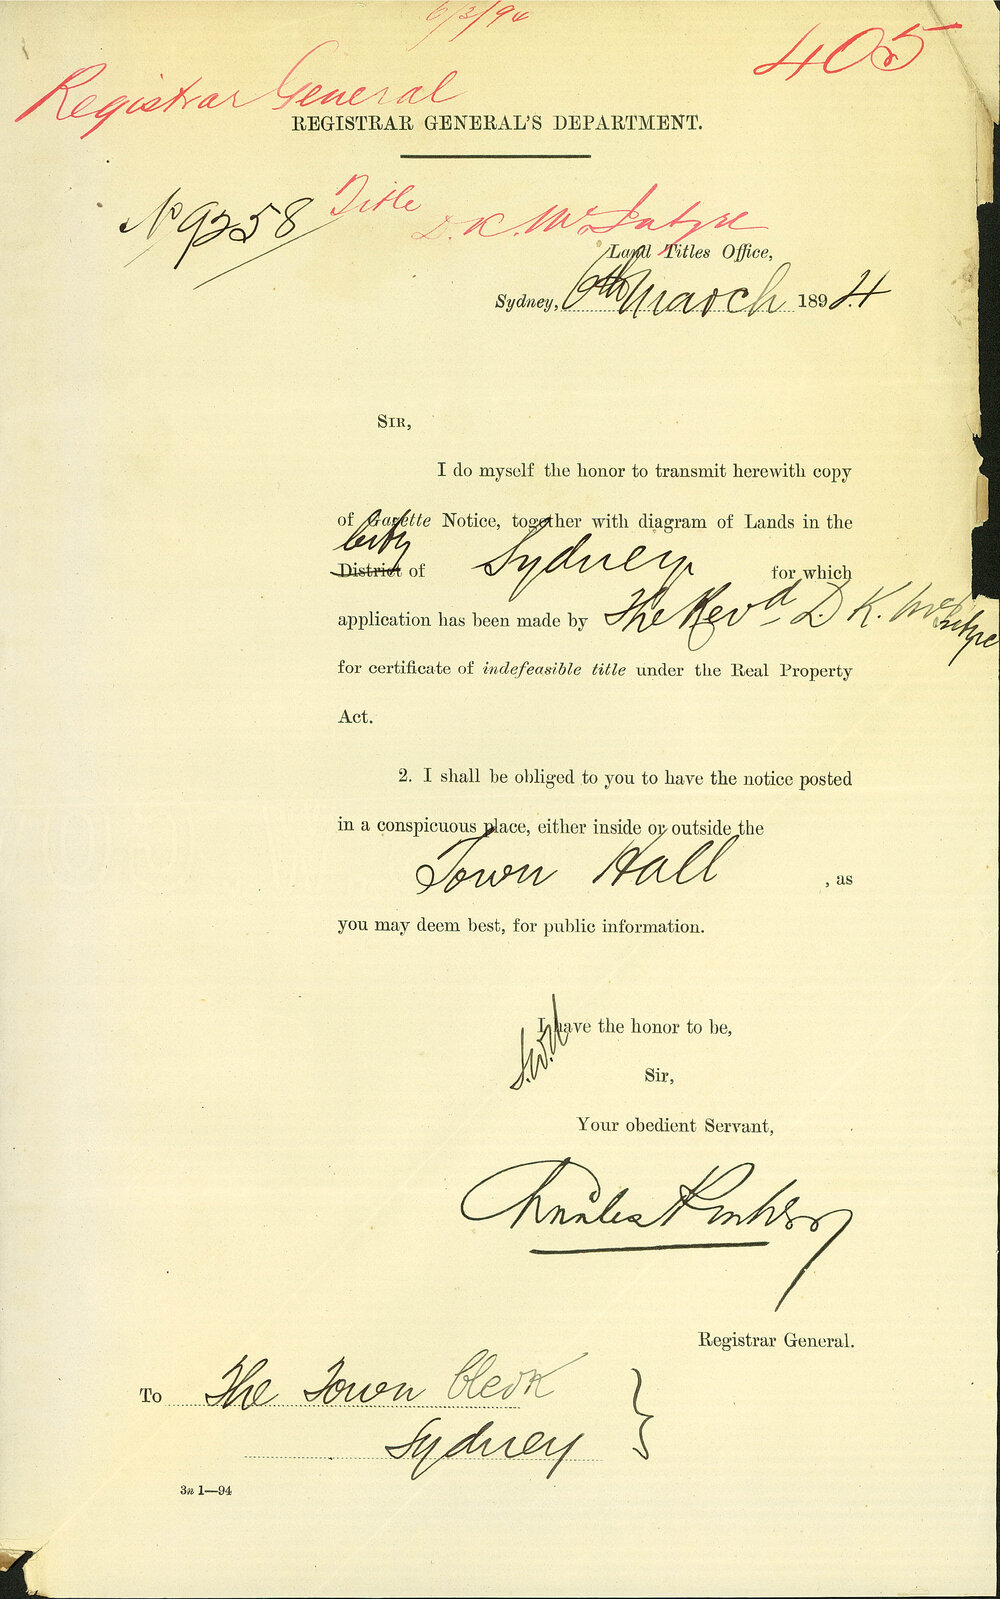 6/3/94
405
Registrar General
REGISTRAR GENERAL'S DEPARTMENT.
No 9258 Title
D. K. McIntyre
Land Titles Office,
Sydney, 6th March 1894
SIR,
I do myself the honor to transmit herewith copy
of Gazette Notice, together with diagram of Lands in the
City
District of Sydney for which
application has been made by The Revd D. K. McIntyre
for certificate of indefeasible title under the Real Property
Act.
2. I shall be obliged to you to have the notice posted
in a conspicuous place, either inside or outside the
Town Hall , as
you may deem best, for public information.
I have the honor to be,
Sir,
Your obedient Servant,
Charles
Registrar General.
To The Town Clerk
Sydney
3n 1—94